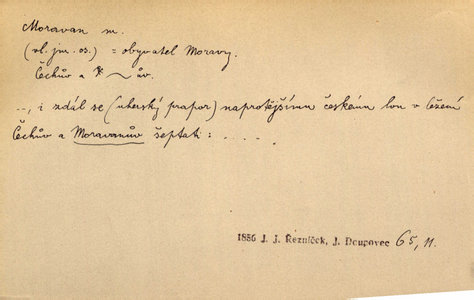 Moravan m.
(vl. jm. os.) = obyvatel Moravy.
Čechův a ~ův.
.., i zdál se (uherský prapor) naprotějšímu českému lvu v ležení
Čechův a Moravanův šeptati: . . . . .
1886 J. J. Řezníček, J. Doupovec 65, 11.